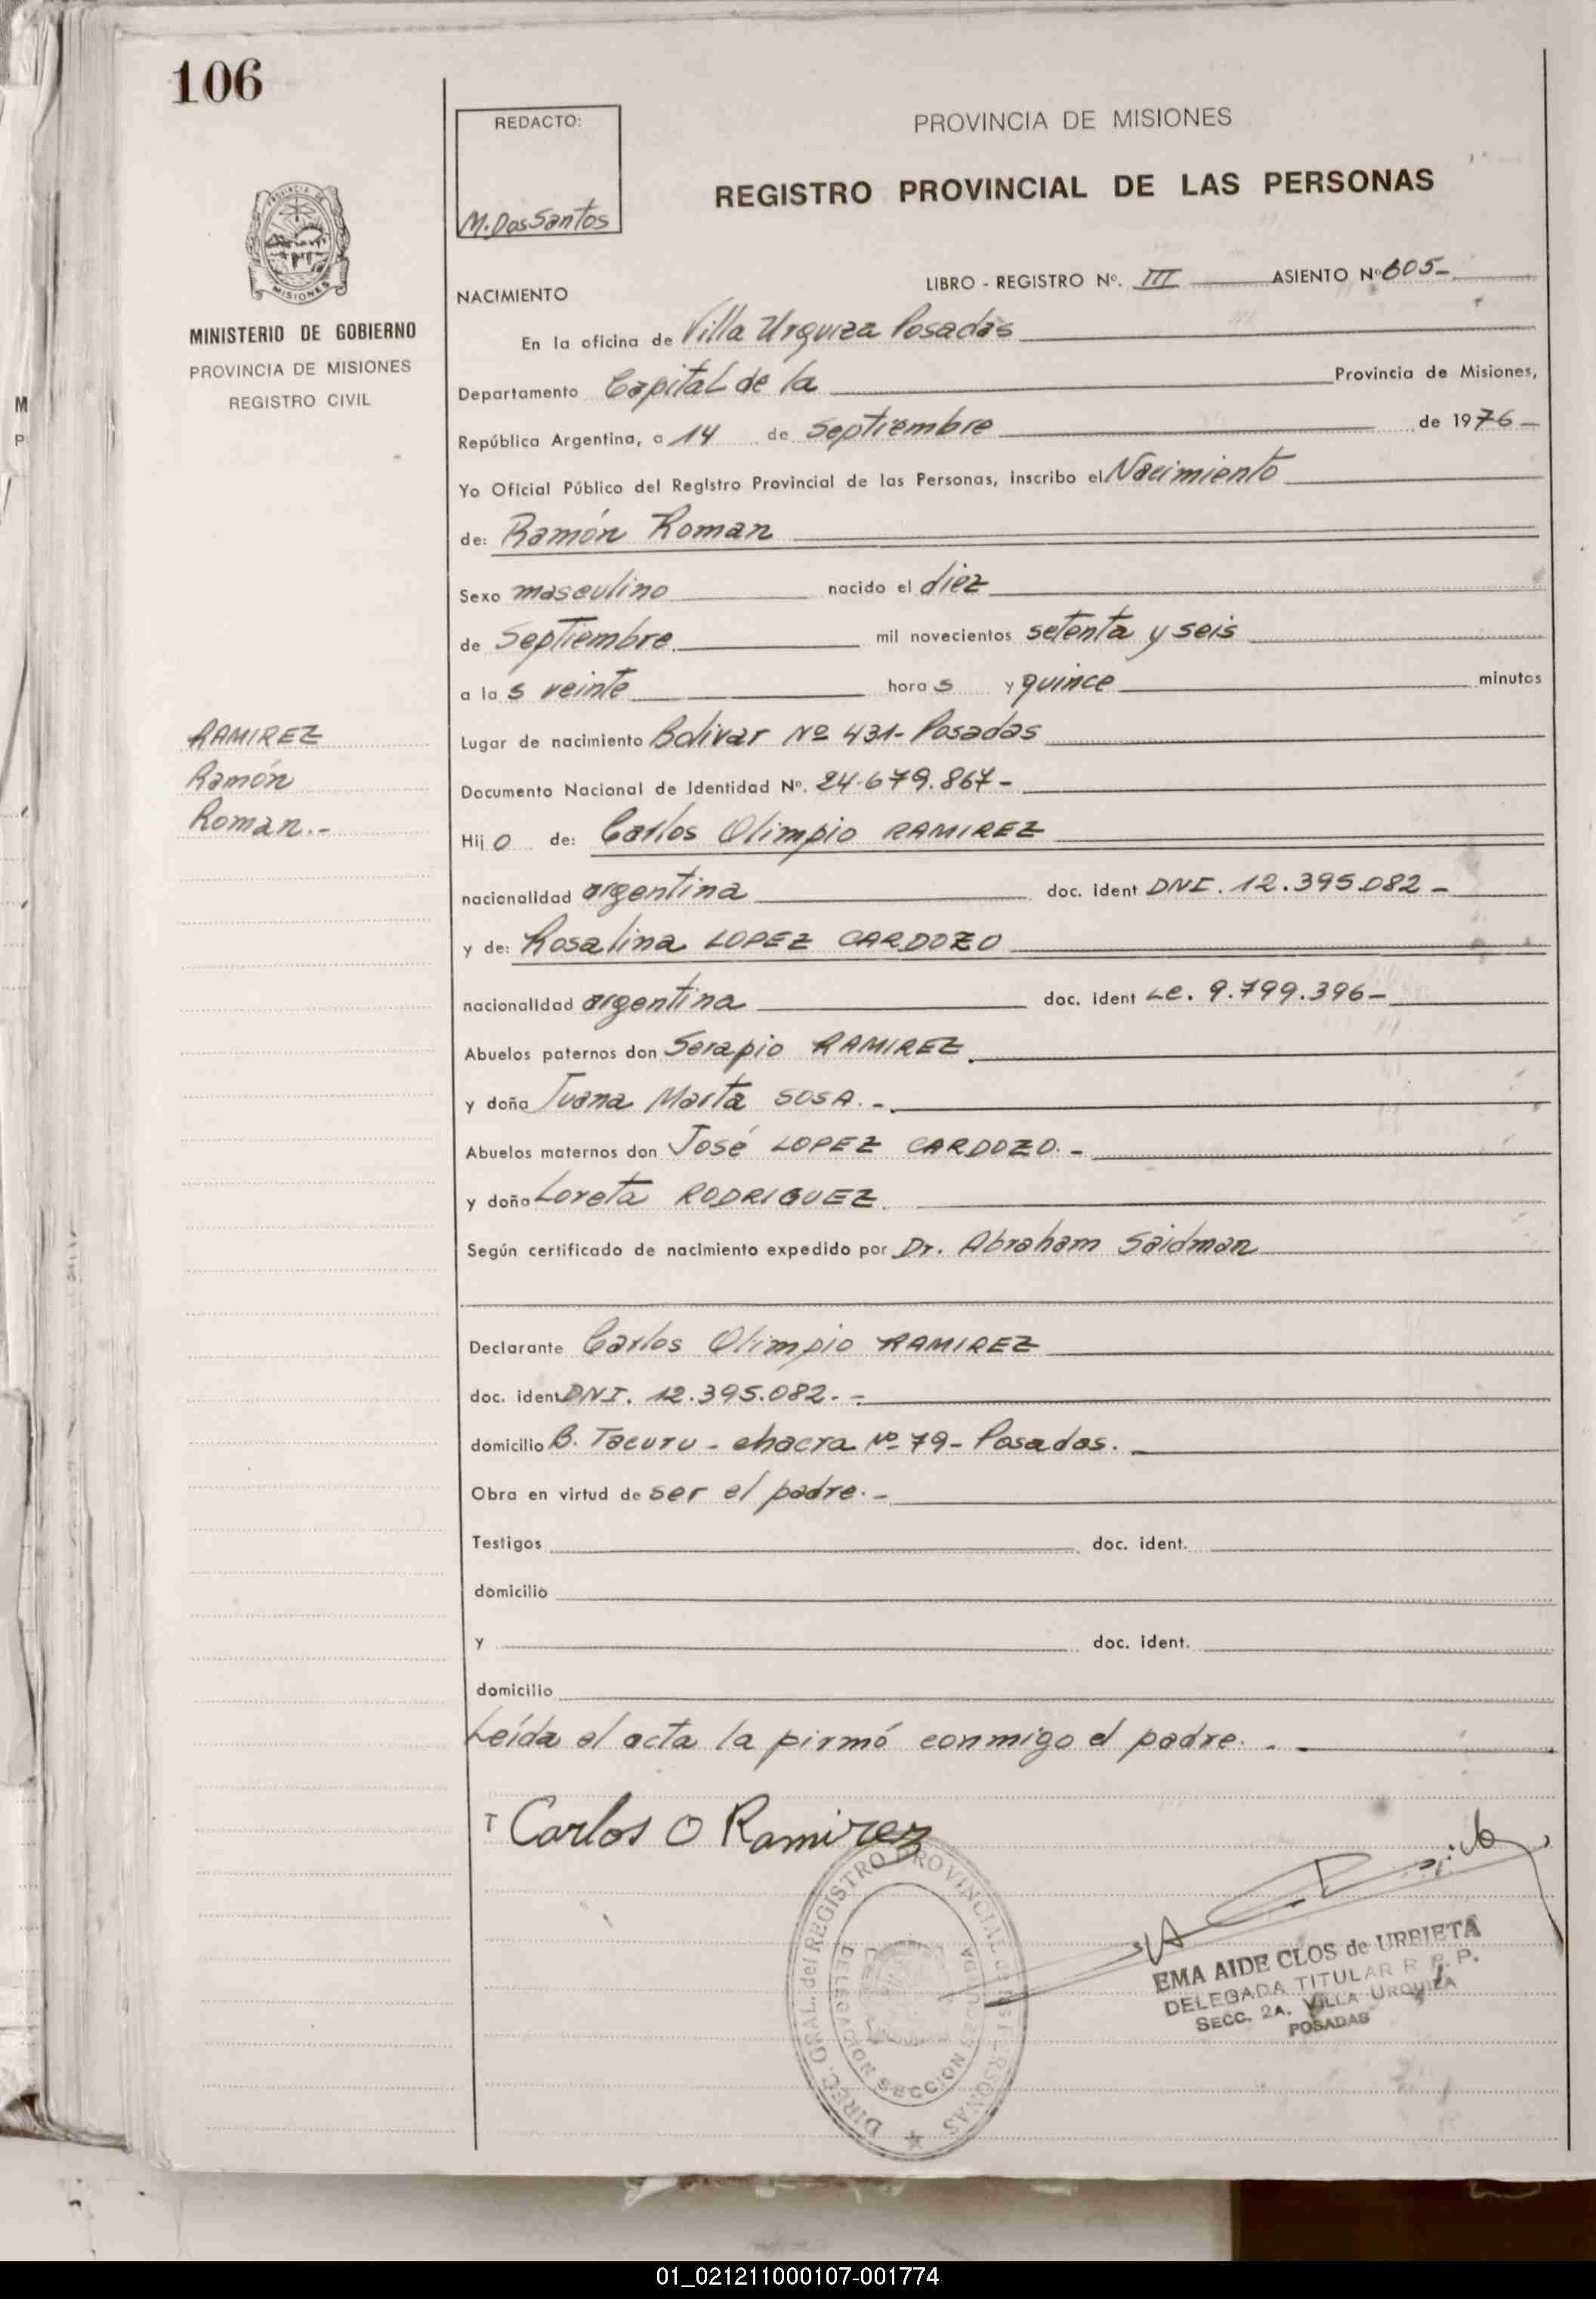 106
REDACTO:
M. Dos Santos
PROVINCIA DE MISIONES
REGISTRO PROVINCIAL DE LAS PERSONAS
PROVINCIA DE
MISIONES
MINISTERIO DE GOBIERNO
PROVINCIA DE MISIONES
REGISTRO CIVIL
M
P
LIBRO - REGISTRO Nº. III ASIENTO Nº 605-
NACIMIENTO
En la oficina de Villa Urquiza Posadas
Departamento Capital de la Provincia de Misiones,
República Argentina, a 14 de Septiembre de 1976-
Yo Oficial Público del Registro Provincial de las Personas, inscribo el Nacimiento
de: Ramón Roman
Sexo masculino nacido el diez
de Septiembre mil novecientos setenta y seis
a las veinte horas y quince minutos
RAMIREZ
Ramón
Roman.-
Lugar de nacimiento Bolivar Nº 431- Posadas
Documento Nacional de Identidad Nº. 24.679.867-
Hijo de: Carlos Olimpio RAMIREZ
nacionalidad argentina doc. ident DNI. 12.395.082-
y de: Rosalina LOPEZ CARDOZO
nacionalidad argentina doc. ident Lc. 9.799.396-
Abuelos paternos don Serapio RAMIREZ
y doña Juana Marta SOSA.-
Abuelos maternos don José LOPEZ CARDOZO.-
y doña Loreta RODRIGUEZ
Según certificado de nacimiento expedido por Dr. Abraham Saidman
Declarante Carlos Olimpio RAMIREZ
doc. ident DNI. 12.395.082.-
domicilio B. Tacuru - chacra Nº 79- Posadas.
Obra en virtud de ser el padre.-
Testigos doc. ident.
domicilio
y doc. ident.
domicilio
Leída el acta la firmó conmigo el padre.-
T Carlos O Ramirez
DIREC. GRAL. del REGISTRO PROVINCIAL de las PERSONAS
SECCION
EMA AIDE CLOS de URBIETA
DELEGADA TITULAR R. P. P.
SECC. 2A. VILLA URQUIZA
POSADAS
01_021211000107-001774